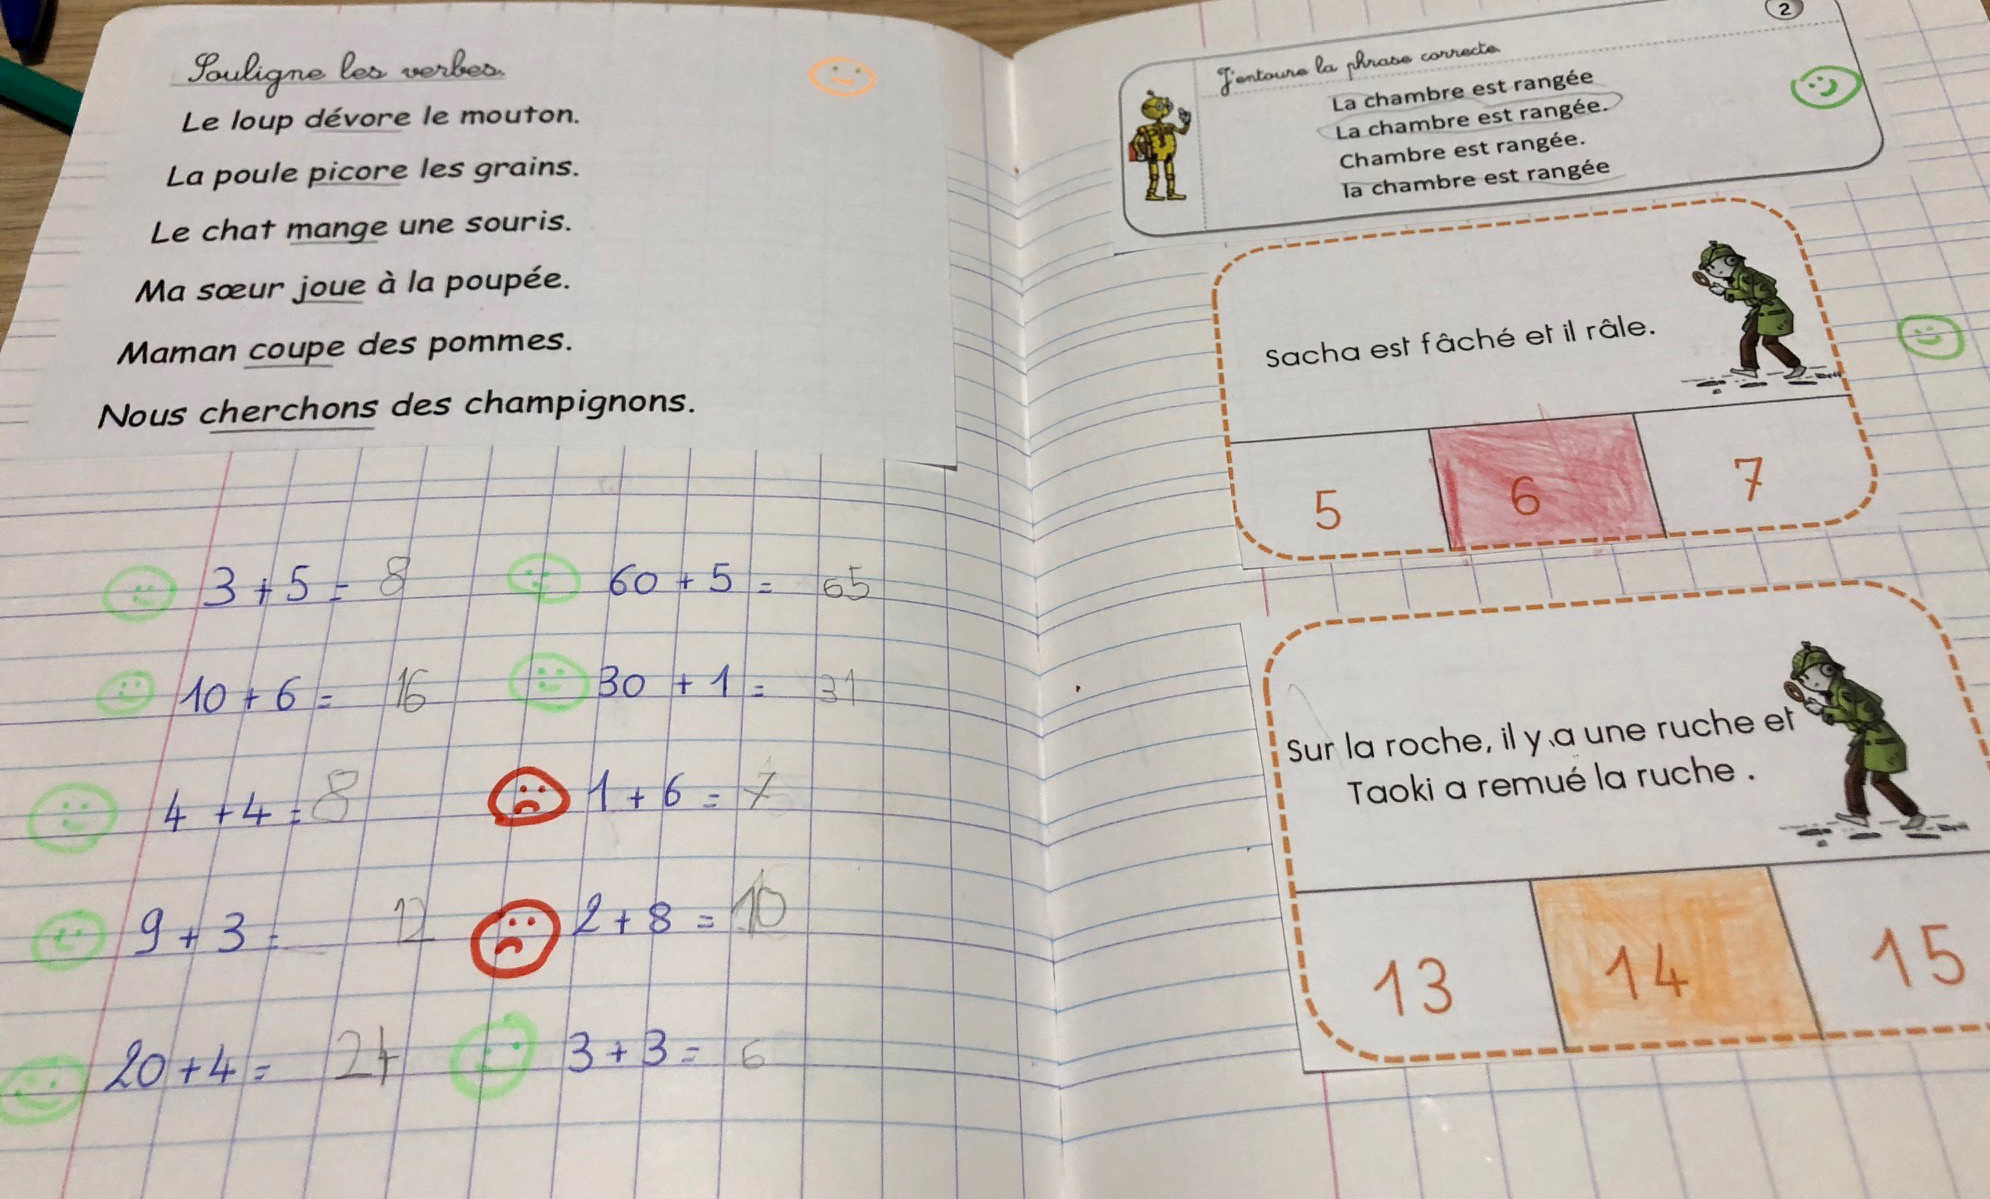 Souligne les verbes.
Le loup dévore le mouton.
La poule picore les grains.
Le chat mange une souris.
Ma sœur joue à la poupée.
Maman coupe des pommes.
Nous cherchons des champignons.
3 + 5 = 8
60 + 5 = 65
10 + 6 = 16
30 + 1 = 31
4 + 4 = 8
1 + 6 = 7
9 + 3 = 12
2 + 8 = 10
20 + 4 = 24
3 + 3 = 6
2
J'entoure la phrase correcte
La chambre est rangée
La chambre est rangée.
Chambre est rangée.
la chambre est rangée
Sacha est fâché et il râle.
5 6 7
Sur la roche, il y a une ruche et
Taoki a remué la ruche .
13 14 15